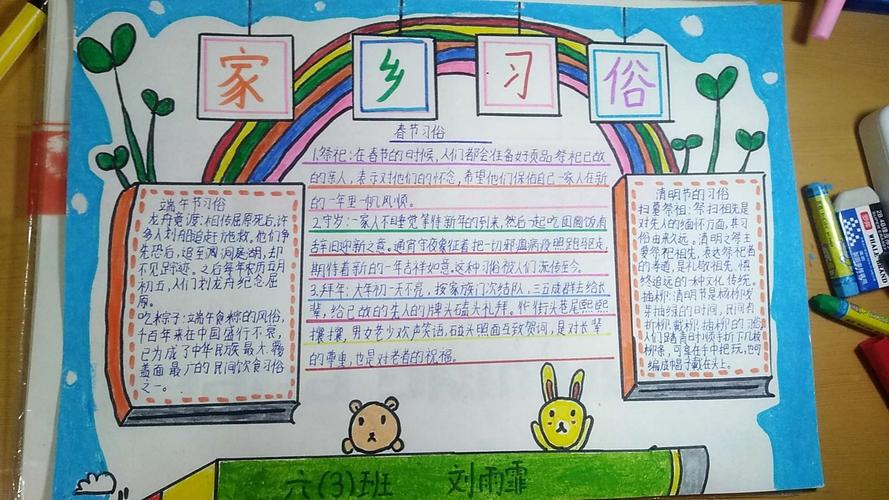 家乡习俗
春节习俗
1.祭祀:在春节的时候,人们都会准备好贡品祭祀已故
的亲人,表示对他们的怀念,希望他们保佑自己一家人在新
的一年里一帆风顺。
2.守岁:一家人不睡觉等待新年的到来,然后一起吃团圆饭有
辞旧迎新之意。通宵守夜象征着把一切邪瘟病疫照跑驱走,
期待着新的一年吉祥如意。这种习俗被人们流传至今。
3.拜年:大年初一天亮,按家族门次结队,三五成群去给长
辈,给已故的亲人的牌头磕头礼拜。街头巷尾熙熙
攘攘,男女老少欢声笑语,碰头照面互致贺词,是对长辈
的尊重,也是对老者的祝福。
端午节习俗
龙舟竟渡:相传屈原死后,许
多人划船追赶拯救。他们争
先恐后,追至洞庭湖,却
不见踪迹。之后每年农历五月
初五,人们划龙舟纪念屈
原。
吃粽子:端午食粽的风俗,
千百年来在中国盛行不衰,
已为成了中华民族最大、覆
盖面最广的民间饮食习俗
之一。
清明节的习俗
扫墓祭祖:祭扫祖先是
对先人的缅怀方面,其习
俗由来久远。清明之祭主
要祭祀祖先,表达祭祀者
的孝道,是礼敬祖先,慎
终追远的一种文化传统。
插柳:清明节是杨柳发
芽抽绿的时间,民间有
折柳、戴柳、插柳的习俗
人们踏青时顺手折下几枝
柳条,可拿在手中把玩,也可
编成帽子戴在头上。
六(3)班 刘雨霏
WHALE BRAND